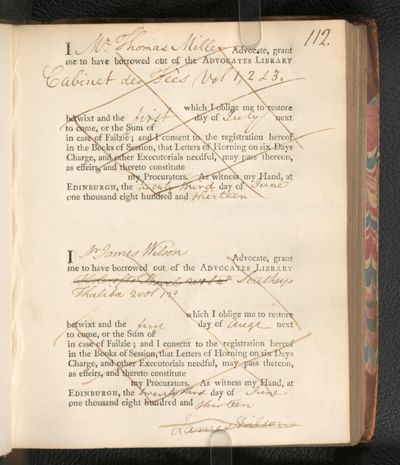 112.
I Mr. Thomas Miller Advocate, grant
me to have borrowed out of the ADVOCATES LIBRARY
Cabinet des Fées Vol 1, 2 & 3.
which I oblige me to restore
betwixt and the first day of July next
to come, or the Sum of
in case of Failzie; and I consent to the registration hereof
in the Books of Session, that Letters of Horning on six Days
Charge, and other Executorials needful, may pass thereon,
as effeirs, and thereto constitute
my Procurators. As witness my Hand, at
EDINBURGH, the twenty third day of June
one thousand eight hundred and thirteen
I Mr James Wilson Advocate, grant
me to have borrowed out of the ADVOCATES LIBRARY
Travels 2 vol 4o Southeys
Thaliba 2 vol 12o
which I oblige me to restore
betwixt and the day of next
to come, or the Sum of
in case of Failzie; and I consent to the registration hereof
in the Books of Session, that Letters of Horning on six Days
Charge, and other Executorials needful, may pass thereon,
as effeirs, and thereto constitute
my Procurators. As witness my Hand, at
EDINBURGH, the twenty third day of June
one thousand eight hundred and thirteen
James Wilson